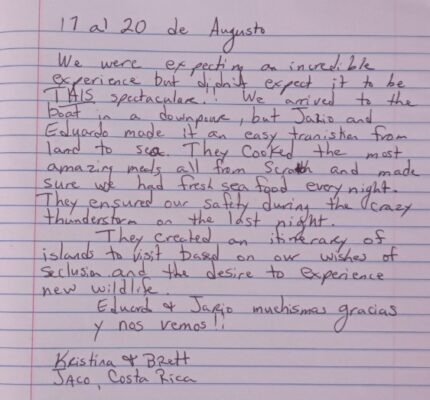 17 al 20 de Augusto
We were expecting an incredible
experience but didn't expect it to be
THIS spectacular!. We arrived to the
boat in a downpour, but Jario and
Eduardo made it an easy transition from
land to sea. They cooked the most
amazing meals all from Scratch and made
sure we had fresh sea food every night.
They ensured our safety during the crazy
thunderstorm on the last night.
They created an itinerary of
islands to visit based on our wishes of
seclusion and the desire to experience
new wildlife.
Eduardo & Jario muchismas gracias
y nos vemos!!
Kristina & Brett
JACO, Costa Rica